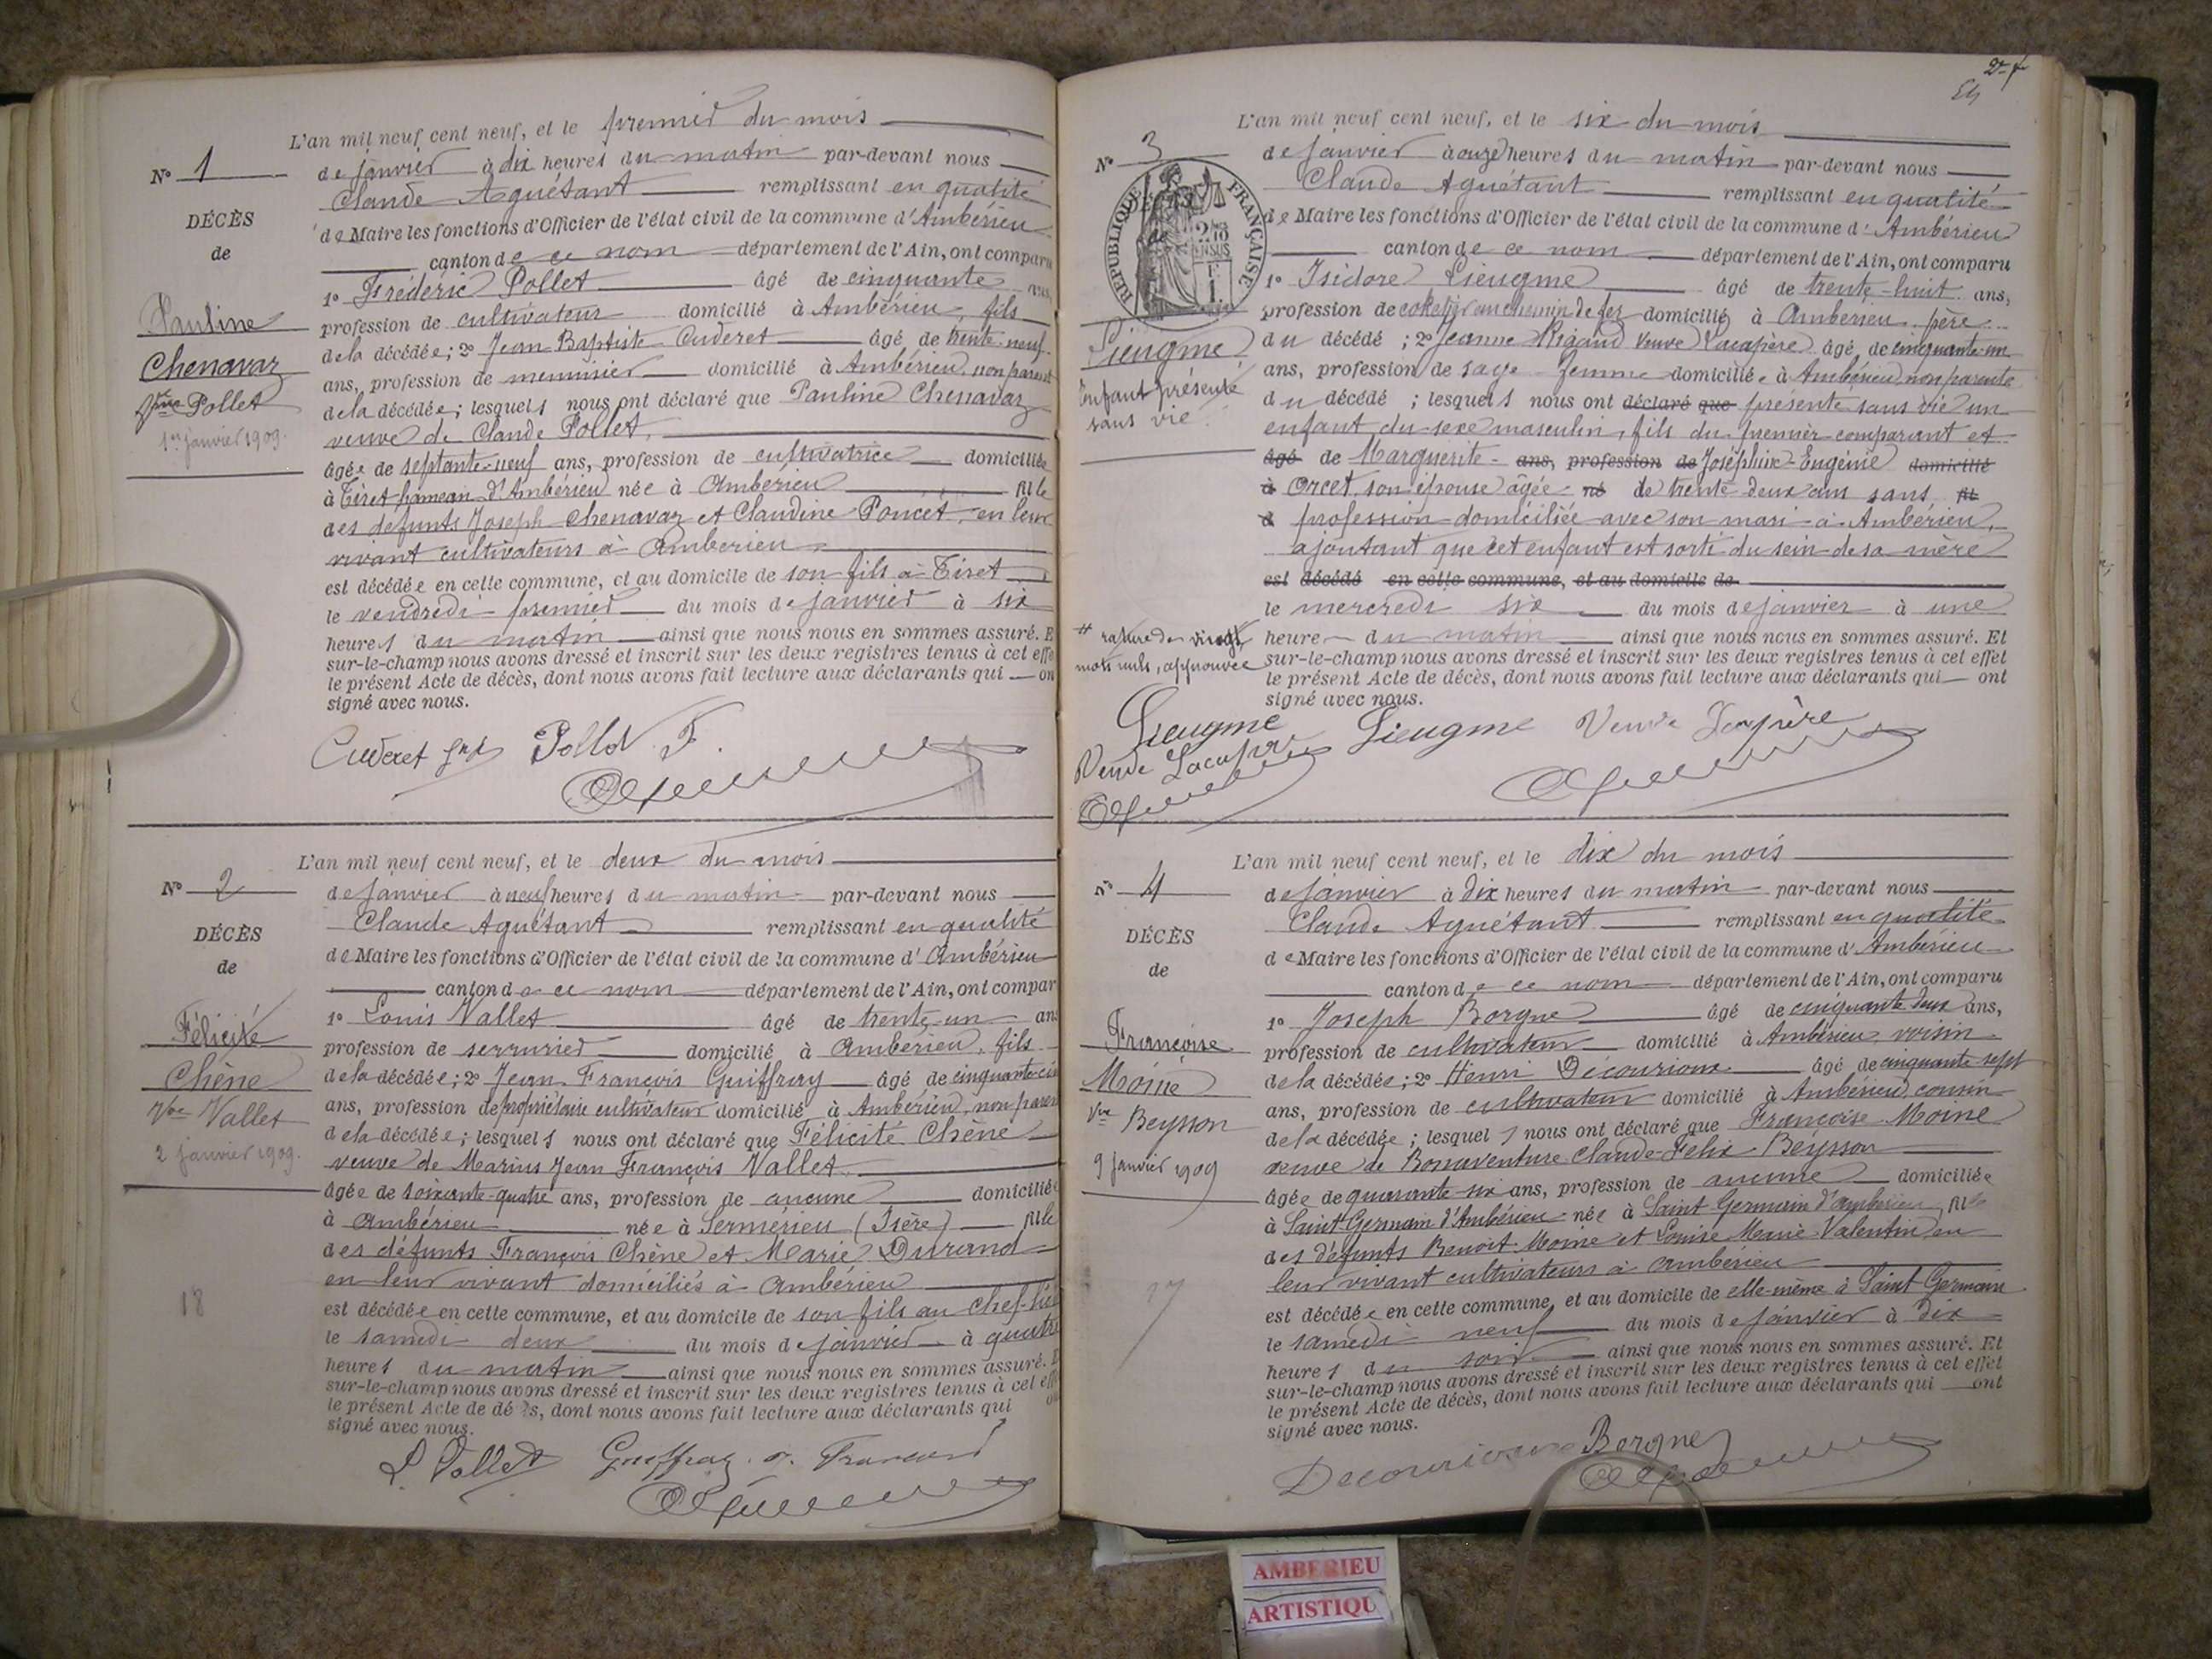 L'an mil neuf cent neuf, et le premier du mois
N° 1
de janvier à dix heures du matin par-devant nous
Claude Aguétant remplissant en qualité
DÉCÈS
de Maire les fonctions d'Officier de l'état civil de la commune d'Ambérieu
de
canton de ce nom département de l'Ain, ont comparu
1° Frédéric Pollet âgé de cinquante ans,
Pauline
profession de cultivateur domicilié à Ambérieu, fils
Chenavaz
de la décédée; 2° Jean Baptiste Cuderet âgé de trente-neuf
ans, profession de menuisier domicilié à Ambérieu, non parent
Vve Pollet
de la décédée; lesquels nous ont déclaré que Pauline Chenavaz
1er janvier 1909.
veuve de Claude Pollet,
âgée de septante-neuf ans, profession de cultivatrice domiciliée
à Tiret hameau d'Ambérieu née à Ambérieu fille
des défunts Joseph Chenavaz et Claudine Poncet, en leur
vivant cultivateurs à Ambérieu
est décédée en cette commune, et au domicile de son fils à Tiret
le vendredi premier du mois de janvier à six
heures du matin ainsi que nous nous en sommes assuré. E
sur-le-champ nous avons dressé et inscrit sur les deux registres tenus à cet effe
le présent Acte de décès, dont nous avons fait lecture aux déclarants qui on
signé avec nous.
Cuderet Pollet F.
L'an mil neuf cent neuf, et le deux du mois
N° 2
de janvier à neuf heures du matin par-devant nous
Claude Aguétant remplissant en qualité
DÉCÈS
de Maire les fonctions d'Officier de l'état civil de la commune d'Ambérieu
de
canton de ce nom département de l'Ain, ont compar
1° Louis Vallet âgé de trente-un ans
Félicité
profession de serrurier domicilié à Ambérieu, fils
Chêne
de la décédée; 2° Jean François Guiffray âgé de cinquante-cin
Vve Vallet
ans, profession de propriétaire cultivateur domicilié à Ambérieu, non paren
de la décédée; lesquels nous ont déclaré que Félicité Chêne
2 janvier 1909.
veuve de Marius Jean François Vallet
âgée de soixante-quatre ans, profession de aucune domiciliée
à Ambérieu née à Sermérieu (Isère) fille
des défunts François Chêne et Marie Durand
en leur vivant domiciliés à Ambérieu
18
est décédée en cette commune, et au domicile de son fils au chef-lieu
le samedi deux du mois de janvier à quatre
heures du matin ainsi que nous nous en sommes assuré. E
sur-le-champ nous avons dressé et inscrit sur les deux registres tenus à cet eff
le présent Acte de décès, dont nous avons fait lecture aux déclarants qui on
signé avec nous.
L. Vallet Guiffray
L'an mil neuf cent neuf, et le six du mois
N° 3
de janvier à onze heures du matin par-devant nous
Claude Aguétant remplissant en qualité
RÉPUBLIQUE FRANÇAISE
de Maire les fonctions d'Officier de l'état civil de la commune d'Ambérieu
canton de ce nom département de l'Ain, ont comparu
1° Isidore Lieugme âgé de trente-huit ans,
profession de coketier au chemin de fer domicilié à Ambérieu père
Lieugme
du décédé; 2° Jeanne Rigaud veuve Lacapère âgé, de cinquante-un
Enfant présenté
ans, profession de sage-femme domiciliée à Ambérieu, non parente
sans vie.
du décédé; lesquels nous ont déclaré que présenté sans vie un
enfant du sexe masculin, fils du premier comparant et
âgé de Marguerite ans, profession de Joséphine-Eugénie domicilié
à Orcet, son épouse âgée né de trente-deux ans sans fil
d profession domiciliée avec son mari à Ambérieu,
ajoutant que cet enfant est sorti du sein de sa mère
est décédé en cette commune, et au domicile de
le mercredi six du mois de janvier à une
heure du matin ainsi que nous nous en sommes assuré. Et
mots nuls, approuvée
sur-le-champ nous avons dressé et inscrit sur les deux registres tenus à cet effet
le présent Acte de décès, dont nous avons fait lecture aux déclarants qui ont
signé avec nous.
Lieugme Lieugme Veuve Lacapère
Veuve Lacapère
L'an mil neuf cent neuf, et le dix du mois
N° 4
de janvier à dix heures du matin par-devant nous
Claude Aguétant remplissant en qualité
DÉCÈS
de Maire les fonctions d'Officier de l'état civil de la commune d'Ambérieu
de
canton de ce nom département de l'Ain, ont comparu
1° Joseph Borgne âgé de cinquante deux ans,
Françoise
profession de cultivateur domicilié à Ambérieu, voisin
Moine
de la décédée; 2° Henri Décourioux âgé de cinquante sept
Vve Beysson
ans, profession de cultivateur domicilié à Ambérieu, cousin
de la décédée; lesquels nous ont déclaré que Françoise Moine
9 janvier 1909
veuve de Bonaventure Claude-Félix Beysson
âgée de quarante six ans, profession de aucune domiciliée
à Saint Germain d'Ambérieu née à Saint Germain d'Ambérieu fille
des défunts Benoit Moine et Louise Marie Valentin en
leur vivant cultivateurs à Ambérieu
est décédée en cette commune, et au domicile de elle-même à Saint Germain
le samedi neuf du mois de janvier à dix
heures du soir ainsi que nous nous en sommes assuré. Et
sur-le-champ nous avons dressé et inscrit sur les deux registres tenus à cet effet
le présent Acte de décès, dont nous avons fait lecture aux déclarants qui ont
signé avec nous.
Decourioux Borgne
AMBERIEU
ARTISTIQU